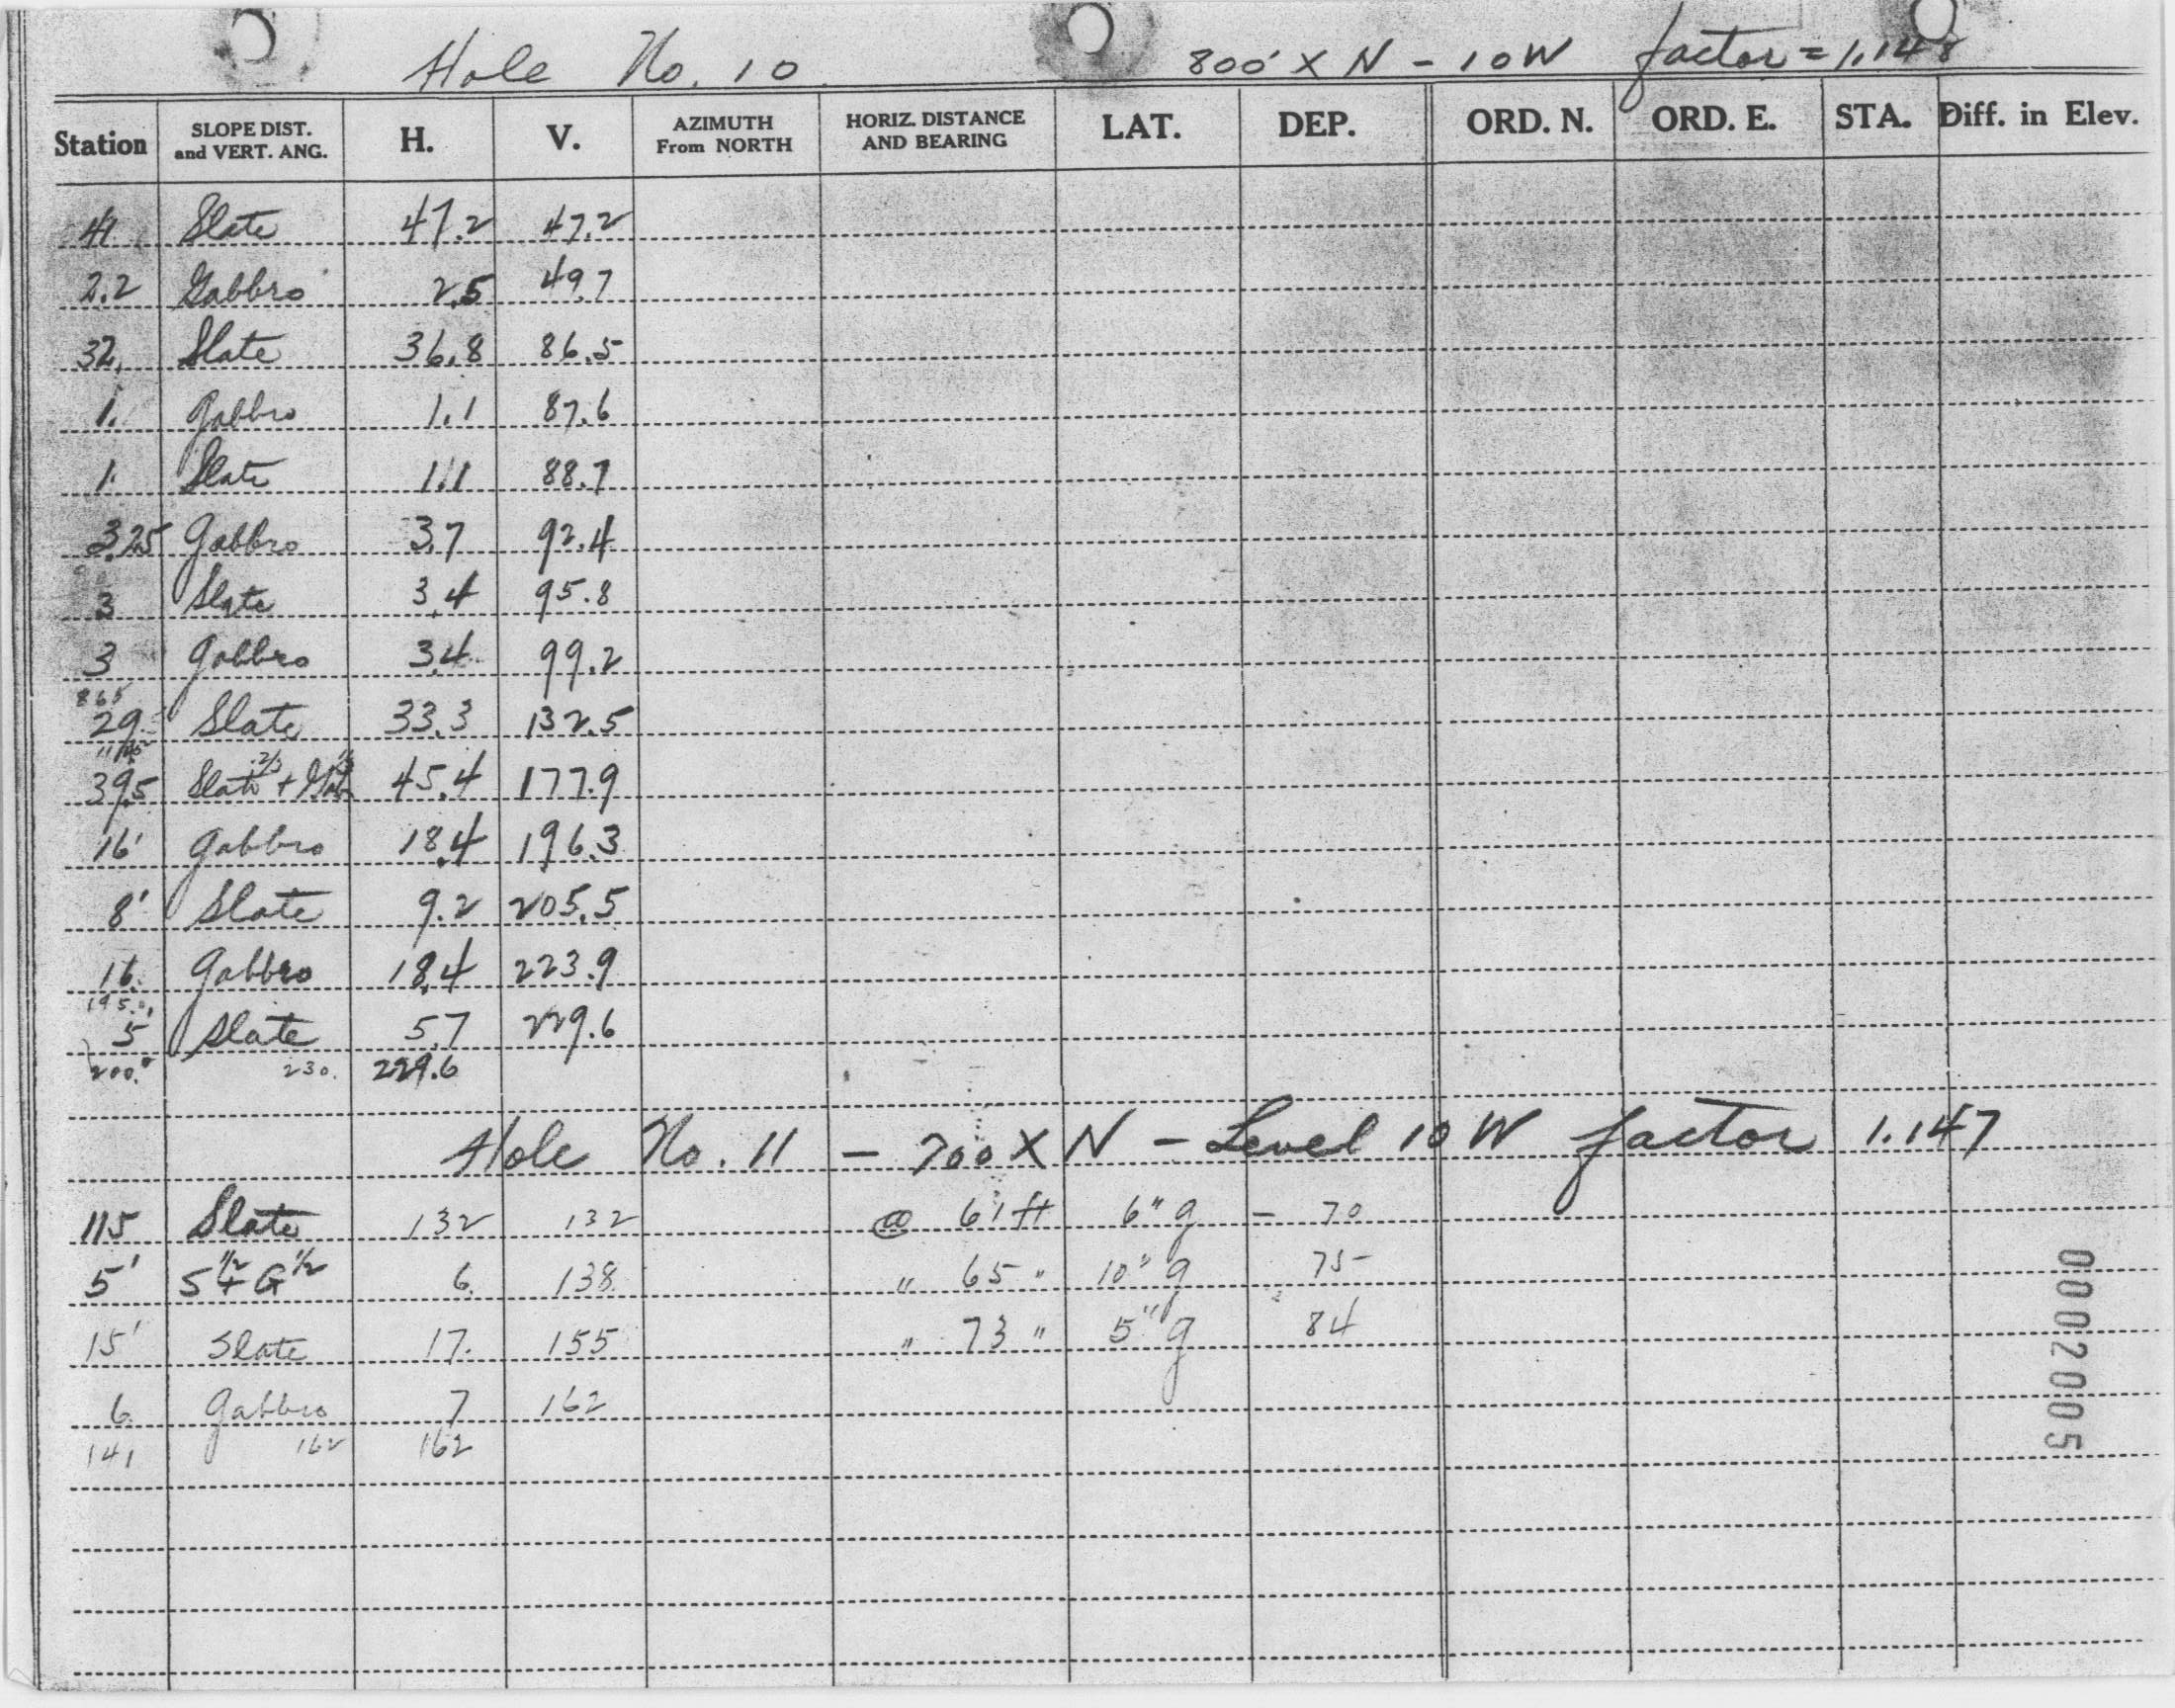 Hole No. 10 800' X N - 10W factor = 1.148
Station SLOPE DIST. and VERT. ANG. H. V. AZIMUTH From NORTH HORIZ. DISTANCE AND BEARING LAT. DEP. ORD. N. ORD. E. STA. Diff. in Elev.
41 Slate 47.2 47.2
2.2 Gabbro 2.5 49.7
32. Slate 36.8 86.5
1. Gabbro 1.1 87.6
1. Slate 1.1 88.7
3.25 Gabbro 3.7 92.4
3 Slate 3.4 95.8
3 Gabbro 3.4 99.2
865
29 Slate 33.3 132.5
39.5 Slate 2/3 + Gab 1/3 45.4 177.9
16' Gabbro 18.4 196.3
8' Slate 9.2 205.5
16. Gabbro 18.4 223.9
195.0
5 Slate 5.7 229.6
200.0 230. 229.6
Hole No. 11 - 700 X N - Level 10 W factor 1.147
115 Slate 132 132 @ 61 ft 6" g - 70
5' S 1/2 + G 1/2 6. 138 " 65 " 10" g 75
15' Slate 17. 155 " 73 " 5" g 84
6. Gabbro 7 162
141 162 162
0002005